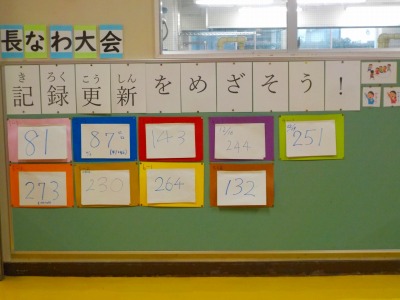 長なわ大会
きろくこうしん
記録更新をめざそう!
81
87
143
244
251
273
230
264
132